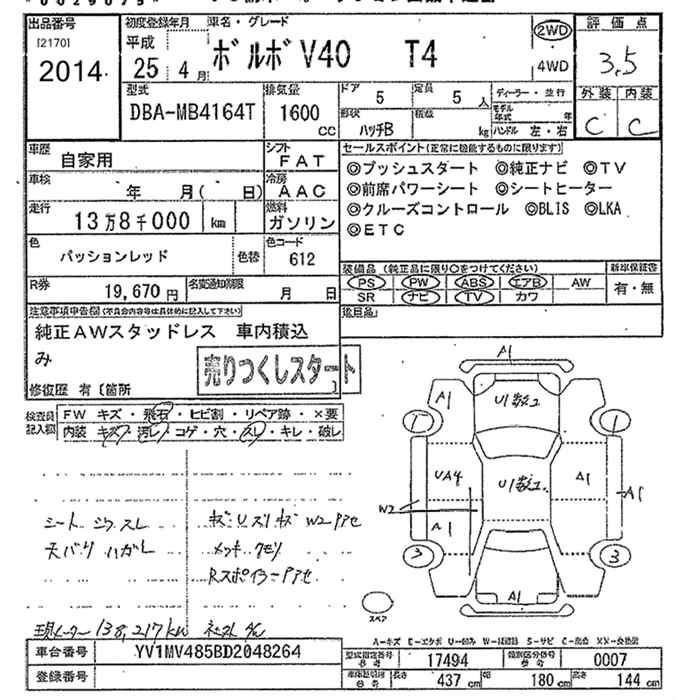 出品番号
[2170]
2014
初度登録年月
平成
25年 4月
車名・グレード
ボルボV40 T4
2WD
4WD
評価点
3.5
外装 内装
C C
型式
DBA-MB4164T
排気量
1600 CC
ドア
5
定員
5 人
形状
ハッチB
積載
kg
ディーラー・並行
モデル年式 年
ハンドル 左・右
車歴
自家用
シフト
FAT
車検
年 月( 日)
冷房
AAC
走行
13万8千000 km
燃料
ガソリン
色
パッションレッド
色替
色コード
612
R券
19,670円
名変通知期限
月 日
セールスポイント(正常に機能するものに限ります)
◎プッシュスタート ◎純正ナビ ◎TV
◎前席パワーシート ◎シートヒーター
◎クルーズコントロール ◎BLIS ◎LKA
◎ETC
装備品(純正品に限り○をつけてください)
PS PW ABS エアB AW
SR ナビ TV カワ
新車保証書
有・無
注意事項申告欄(不具合内容等は具体的に記入して下さい)
純正AWスタッドレス 車内積込
み
売りつくしスタート
修復歴 有〔箇所 〕
検査員記入欄
FW キズ・飛石・ヒビ割・リペア跡・×要
内装 キズ・汚レ・コゲ・穴・スレ・キレ・破レ
シート シワスレ
天バリ ハガレ
キズ・Uスリキズ W2アセ
メッキ クモリ
Rスポイラーアセ
現メーター 138,217km
A1
A1
U1数コ
1
1
UA4
U1数コ
A1
A1
W2
A1
3
3
A1
スペア
車台番号
YV1MV485BD2048264
登録番号
型式指定番号
17494
類別区分番号
0007
長さ
437 cm
幅
180 cm
高さ
144 cm